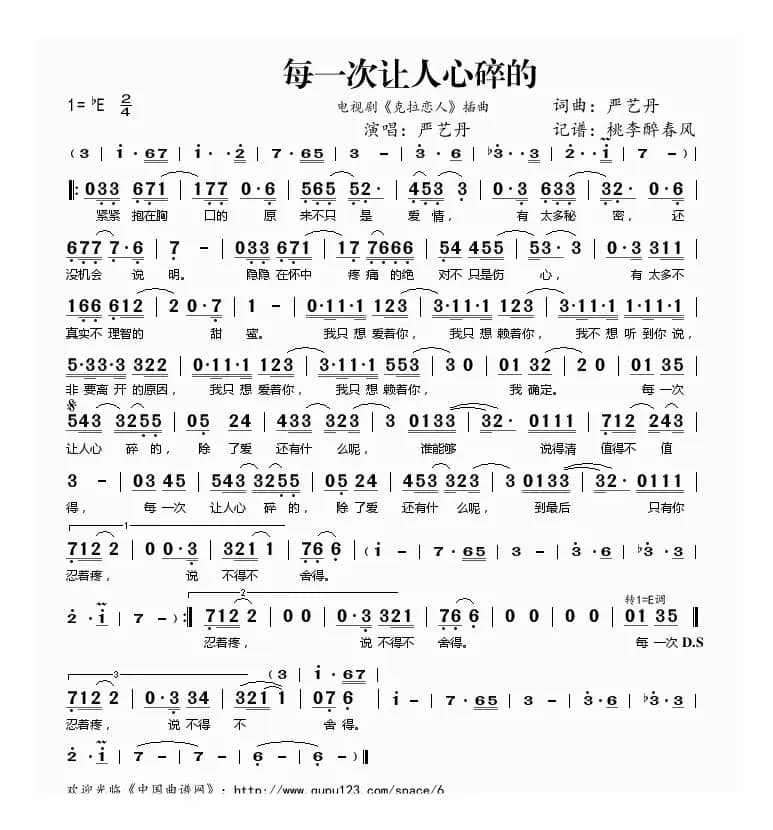 每一次让人心碎的
1=♭E 2/4 电视剧《克拉恋人》插曲 词曲：严艺丹
演唱：严艺丹 记谱：桃李醉春风
（3 | i·67 | i··2 | 7·65 | 3 – | 3·6 | ♭3··3 | 2··i | 7 – ）|
‖: 033 671 | 177 0·6 | 565 52· | 453 3 | 0·3 633 | 32· 0·6 |
紧紧 抱在胸 口的 原 来不只 是 爱 情， 有 太多秘 密， 还
677 7·6 | 7 – | 033 671 | 17 7666 | 54 455 | 53·3 | 0·3 311 |
没机会 说 明。 隐隐 在怀中 疼 痛的绝 对不 只是伤 心， 有 太多不
166 612 | 2 0·7 | 1 – | 0·11·1 123 | 3·11·1 123 | 3·11·1 1·11·1 |
真实不 理智的 甜 蜜。 我只想 爱着你， 我只想 赖着你， 我不想 听到你说，
5·33·3 322 | 0·11·1 123 | 3·11·1 553 | 3 0 | 01 32 | 2 0 | 01 35 |
非要离开的原因， 我只想 爱着你， 我只想 赖着你， 我 确定。 每 一次
543 3255 | 05 24 | 433 323 | 3 0133 | 32· 0111 | 712 243 |
让人心 碎 的， 除 了爱 还有什 么呢， 谁能够 说得清 值得不 值
3 – | 03 45 | 543 3255 | 05 24 | 453 323 | 3 0133 | 32· 0111 |
得， 每 一次 让人心 碎 的， 除 了爱 还有什 么呢， 到最后 只有你
1
712 2 | 0 0·3 | 321 1 | 76 6 |（i – | 7·65 | 3 – | 3·6 | ♭3·3 |
忍着疼， 说 不得不 舍得。
2 转1=E调
2·i | 7 – ）:‖ 712 2 | 0 0 | 0·3 321 | 76 6 | 0 0 | 0 0 | 01 35 ‖
忍着疼， 说 不得不 舍得。 每 一次 D.S
3 （3 | i·67 |
712 2 | 0·3 34 | 321 1 | 07 6 | i – | 7·65 | 3 – | 3·6 | ♭3·3 |
忍着疼， 说 不得 不 舍 得。
2·i | 7 – | 7 – | 6 – | 6 – ）‖
欢迎光临《中国曲谱网》：http://www.qupu123.com/space/6